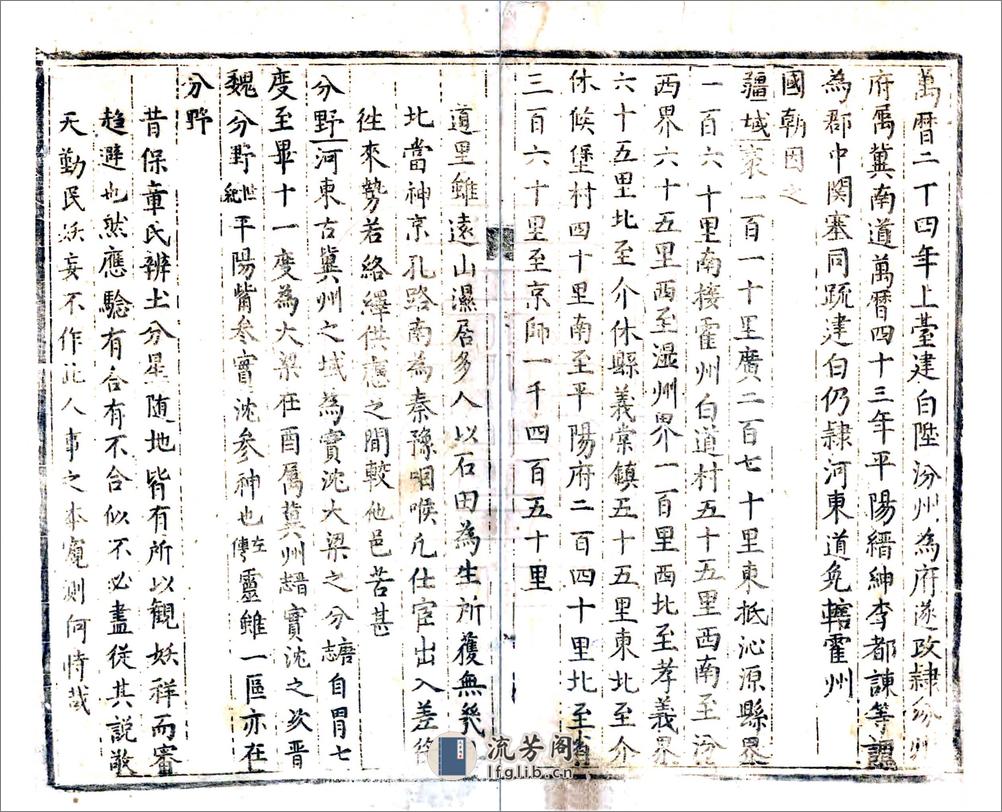 萬曆二十四年上臺建白陞汾州為府遂改隸汾州
府属冀南道萬曆四十三年平陽縉紳李都諫等謂
為郡中関塞同疏建白仍隸河東道兔轄霍州
國朝因之
疆域袤一百一十里廣二百七十里東抵沁源縣界
一百六十里南接霍州白道村五十五里西南至汾
西界六十五里西至湿州界一百里西北至孝義界
六十五里北至介休縣義棠鎮五十五里東北至介
休候堡村四十里南至平陽府二百四十里北至省
三百六十里至京師一千四百五十里
道里雖遠山濕居多人以石田為生所獲無幾
北當神京孔路南為秦豫咽喉凢仕宦出入差
徃來勢若絡繹供應之間較他邑苦甚
分野河東古冀州之域為實沈大梁之分志唐自胃七
度至畢十一度為大梁在酉属冀州志晉實沈之次晉
魏分野世紀平陽觜參實沈參神也左傳靈雖一區亦在
分野
昔保章氏辨土分星随地皆有所以觀妖祥而審
趋避也然應驗有合有不合似不必盡從其説敬
天勤民妖妄不作此人事之本寬則何恃哉
流芳阁
lfglib.cn